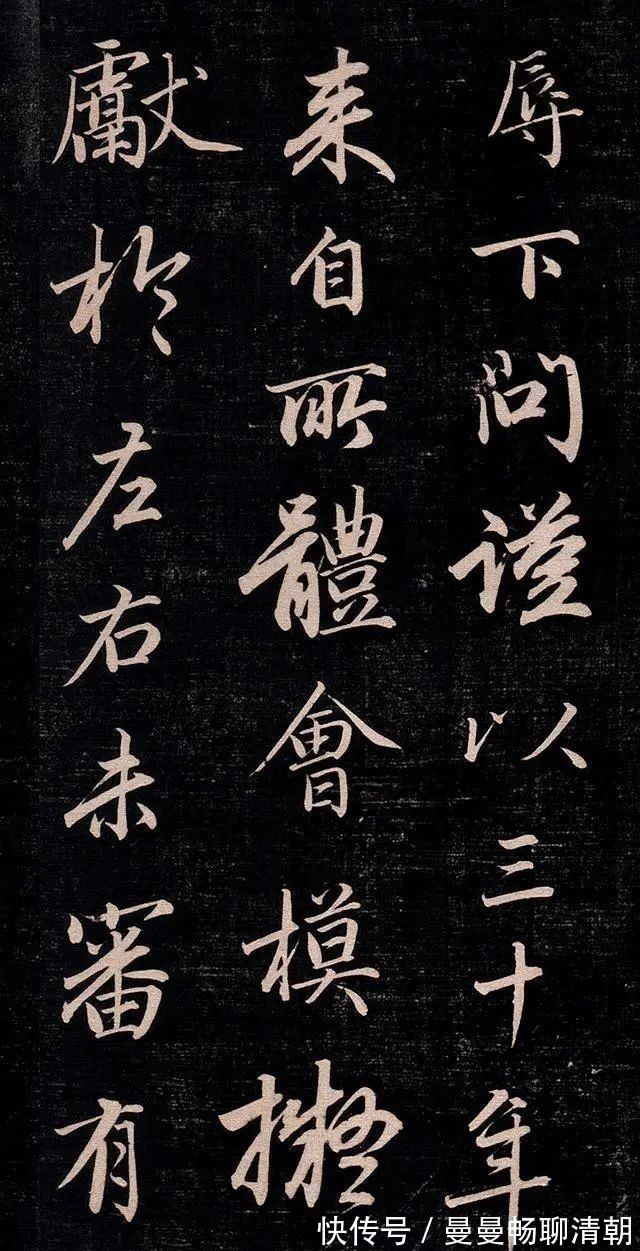 辱下問謹以三十年
來自所體會模擬
獻於左右未審有
快传号 / 曼曼畅聊清朝